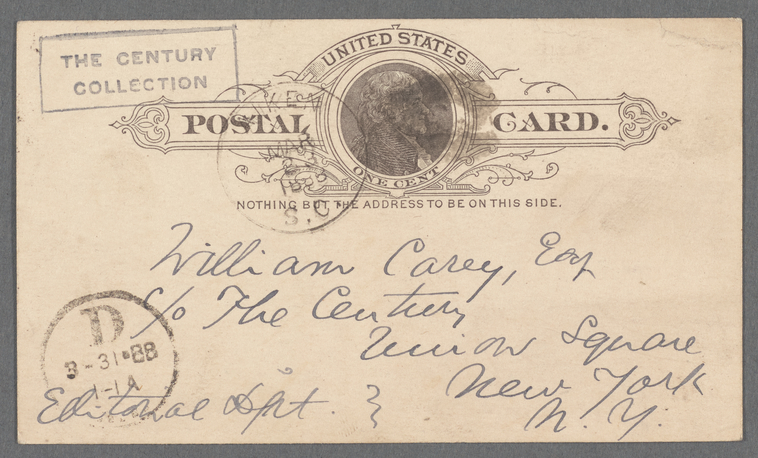 THE CENTURY
COLLECTION
UNITED STATES
POSTAL CARD.
ONE CENT
NOTHING BUT THE ADDRESS TO BE ON THIS SIDE.
AIKEN
MAR
1888
S.C.
William Carey, Esq
c/o The Century
Union Square
New York
N. Y.
Editorial Dpt. }
D
3-31-88
1-1A